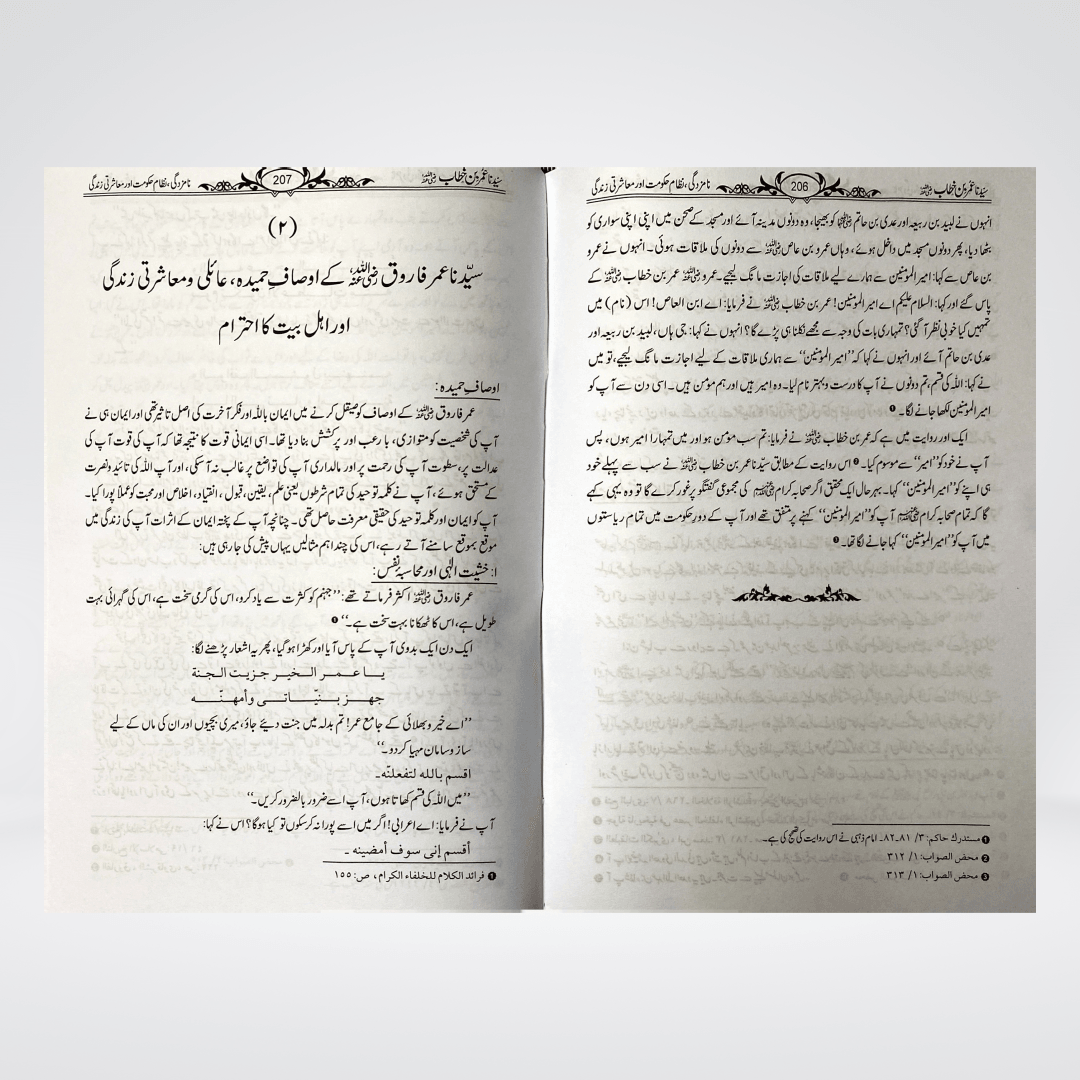 سیّدنا عمر بن خطاب رضی اللہ عنہ 206 نامزدگی، نظام حکومت اور معاشرتی زندگی
انہوں نے لبید بن ربیعہ اور عدی بن حاتم رضی اللہ عنہما کو بھیجا، وہ دونوں مدینہ آئے اور مسجد کے صحن میں اپنی اپنی سواری کو
بٹھا دیا، پھر دونوں مسجد میں داخل ہوئے، وہاں عمرو بن عاص رضی اللہ عنہ سے دونوں کی ملاقات ہوئی۔ انہوں نے عمرو
بن عاص سے کہا: امیر المؤمنین سے ہمارے لیے ملاقات کی اجازت مانگ لیجیے۔ عمرو رضی اللہ عنہ عمر بن خطاب رضی اللہ عنہ کے
پاس گئے اور کہا: السلام علیکم اے امیر المؤمنین! عمر بن خطاب رضی اللہ عنہ نے فرمایا: اے ابن العاص! اس (نام) میں
تمہیں کیا خوبی نظر آ گئی؟ تمہاری بات کی وجہ سے مجھے نکلنا ہی پڑے گا؟ انہوں نے کہا: جی ہاں، لبید بن ربیعہ اور
عدی بن حاتم آئے اور انہوں نے کہا کہ ’’امیر المؤمنین‘‘ سے ہماری ملاقات کے لیے اجازت مانگ لیجیے، تو میں
نے کہا: اللہ کی قسم، تم دونوں نے آپ کا درست و بہتر نام لیا۔ وہ امیر ہیں اور ہم مؤمن ہیں۔ اسی دن سے آپ کو
امیر المؤمنین لکھا جانے لگا۔ ❶
ایک اور روایت میں ہے کہ عمر بن خطاب رضی اللہ عنہ نے فرمایا: تم سب مومن ہو اور میں تمہارا امیر ہوں، پس
آپ نے خود کو ’’امیر‘‘ سے موسوم کیا۔ ❷ اس روایت کے مطابق سیّدنا عمر بن خطاب رضی اللہ عنہ نے سب سے پہلے خود
ہی اپنے کو ’’امیر المؤمنین‘‘ کہا۔ بہرحال ایک محقق اگر صحابہ کرام رضی اللہ عنہم کی مجموعی گفتگو پر غور کرے گا تو وہ یہی کہے
گا کہ تمام صحابہ کرام رضی اللہ عنہم آپ کو ’’امیر المؤمنین‘‘ کہنے پر متفق تھے اور آپ کے دور حکومت میں تمام ریاستوں
میں آپ کو ’’امیر المؤمنین‘‘ کہا جانے لگا تھا۔ ❸
❶ مستدرك حاكم: ۳/ ۸۱۔۸۲۔ امام ذہبی نے اس روایت کی تصحیح کی ہے۔
❷ محض الصواب: ۱/ ۳۱۲
❸ محض الصواب: ۱/ ۳۱۳
سیّدنا عمر بن خطاب رضی اللہ عنہ 207 نامزدگی، نظام حکومت اور معاشرتی زندگی
(۲)
سیّدنا عمر فاروق رضی اللہ عنہ کے اوصافِ حمیدہ، عائلی و معاشرتی زندگی
اور اہل بیت کا احترام
اوصافِ حمیدہ:
عمر فاروق رضی اللہ عنہ کے اوصاف کو صیقل کرنے میں ایمان باللہ اور فکر آخرت کی اصل تاثیر تھی اور ایمان ہی نے
آپ کی شخصیت کو متوازی، بارعب اور پرکشش بنا دیا تھا۔ اسی ایمانی قوت کا نتیجہ تھا کہ آپ کی قوت آپ کی
عدالت پر، سطوت آپ کی رحمت پر اور مالداری آپ کی تواضع پر غالب نہ آ سکی، اور آپ اللہ کی تائید و نصرت
کے مستحق ہوئے، آپ نے کلمہ توحید کی تمام شرطوں یعنی علم، یقین، قبول، انقیاد، اخلاص اور محبت کو عملاً پورا کیا۔
آپ کو ایمان اور کلمہ توحید کی حقیقی معرفت حاصل تھی۔ چنانچہ آپ کے پختہ ایمان کے اثرات آپ کی زندگی میں
موقع بموقع سامنے آتے رہے، اس کی چند اہم مثالیں یہاں پیش کی جا رہی ہیں:
۱: خشیت الٰہی اور محاسبۂ نفس:
عمر فاروق رضی اللہ عنہ اکثر فرماتے تھے: ’’جہنم کو کثرت سے یاد کرو، اس کی گرمی سخت ہے، اس کی گہرائی بہت
طویل ہے، اس کا ٹھکانا بہت سخت ہے۔‘‘ ❶
ایک دن ایک بدوی آپ کے پاس آیا اور کھڑا ہو گیا، پھر یہ اشعار پڑھنے لگا:
يا عمر الخير جزيت الجنة
جهز بنيّاتي وأمهنّه
’’اے خیر و بھلائی کے جامع عمر! تم بدلہ میں جنت دیئے جاؤ، میری بچیوں اور ان کی ماں کے لیے
ساز و سامان مہیا کر دو۔‘‘
اقسم بالله لتفعلنّه۔
’’میں اللہ کی قسم کھاتا ہوں، آپ اسے ضرور بالضرور کریں۔‘‘
آپ نے فرمایا: اے اعرابی! اگر میں اسے پورا نہ کر سکوں تو کیا ہوگا؟ اس نے کہا:
أقسم إنى سوف أمضينه ۔
❶ فرائد الكلام للخلفاء الكرام ، ص: ۱۵۵